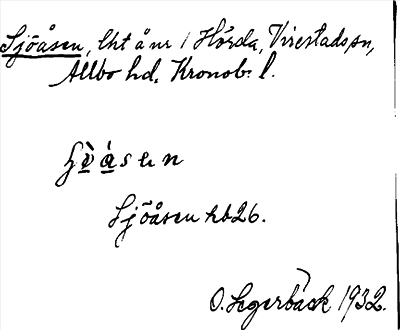 Sjöåsen, lht å nr 1 Hörda, Virestads sn,
Allbo hd. Kronob. l.
Sjöåsen hb 26.
O. Segerbäck 1932.